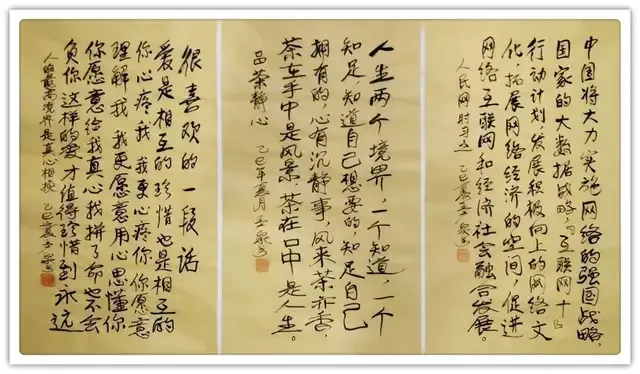 中国将大力实施网络的强国战略,
国家的大数据战略,"互联网+"
行动计划,发展积极向上的网络文
化,拓展网络经济的空间,促进
网络互联网和经济社会融合发展。
人民网时习之 乙巳夏
人生两个境界,一个知道,一个
知足,知道自己想要的,知足自己
拥有的,心有沉静事,风来茶亦香,
茶在手中是风景,茶在口中是人生。
品茶静心 乙巳年夏月
很喜欢的一段话
爱是相互的珍惜也是相互的
你心疼我 我更心疼你 你愿意
理解我 我更愿意用心思懂你
你愿意给我真心我拼了命也不会
负你 这样的爱才值得珍惜到永远
人的最高境界是真心相换 乙巳夏